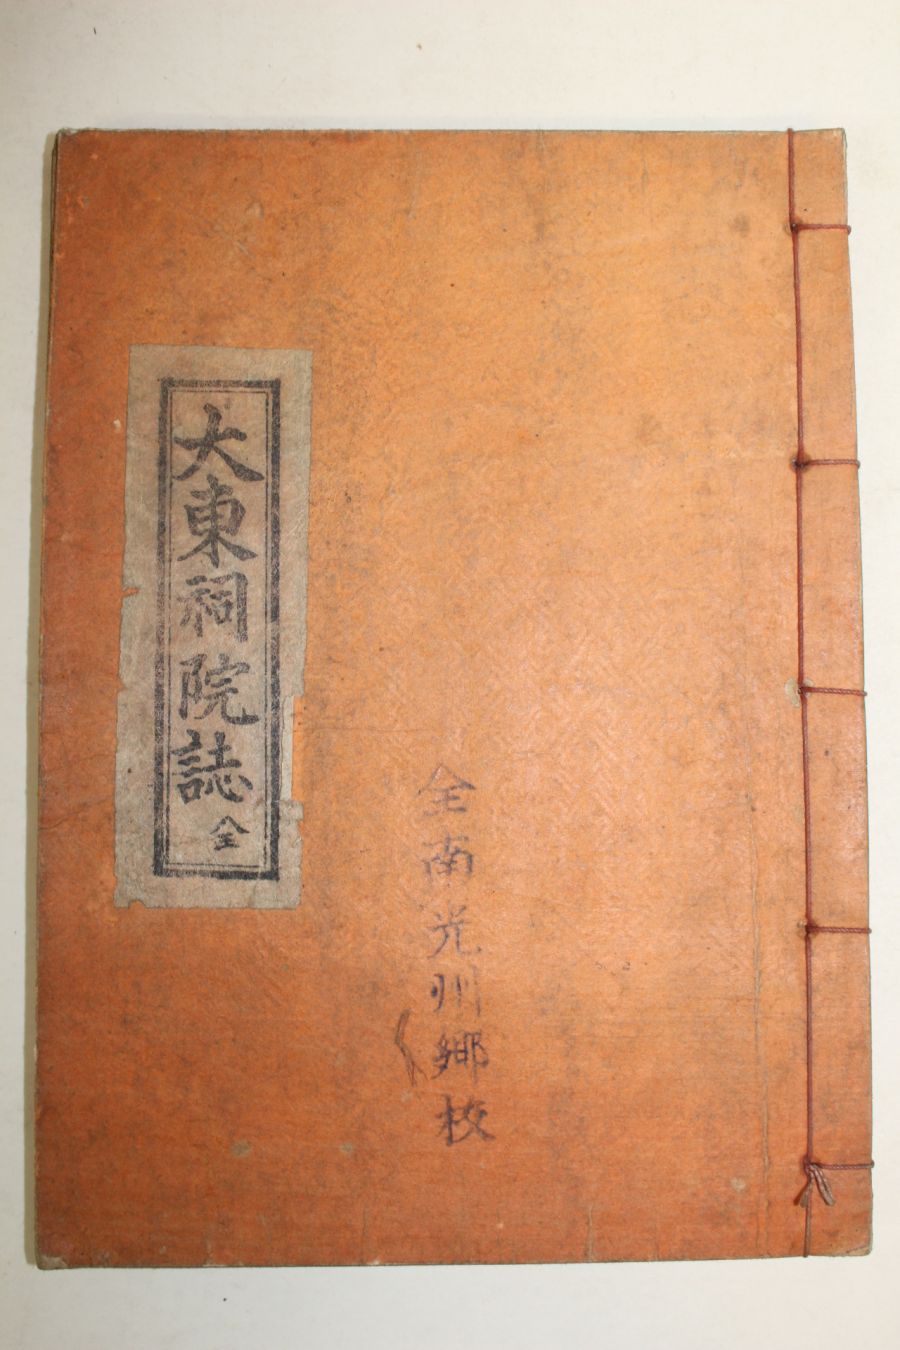 大東祠院誌 全
全南光州鄕校